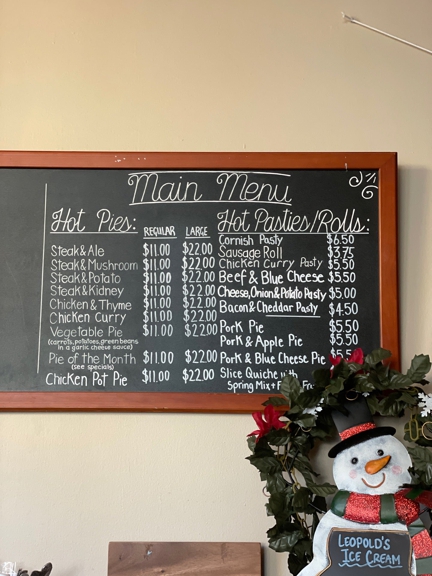 Main Menu
Hot Pies: REGULAR LARGE
Steak & Ale $11.00 $22.00
Steak & Mushroom $11.00 $22.00
Steak & Potato $11.00 $22.00
Steak & Kidney $11.00 $22.00
Chicken & Thyme $11.00 $22.00
Chicken Curry $11.00 $22.00
Vegetable Pie $11.00 $22.00
(carrots, potatoes, green beans
in a garlic cheese sauce)
Pie of the Month $11.00 $22.00
(see specials)
Chicken Pot Pie $11.00 $22.00
Hot Pasties/Rolls:
Cornish Pasty $6.50
Sausage Roll $3.75
Chicken Curry Pasty $5.50
Beef & Blue Cheese $5.50
Cheese, Onion & Potato Pasty $5.00
Bacon & Cheddar Pasty $4.50
Pork Pie $5.50
Pork & Apple Pie $5.50
Pork & Blue Cheese Pie
Slice Quiche with
Spring Mix +
LEOPOLD'S
ICE CREAM